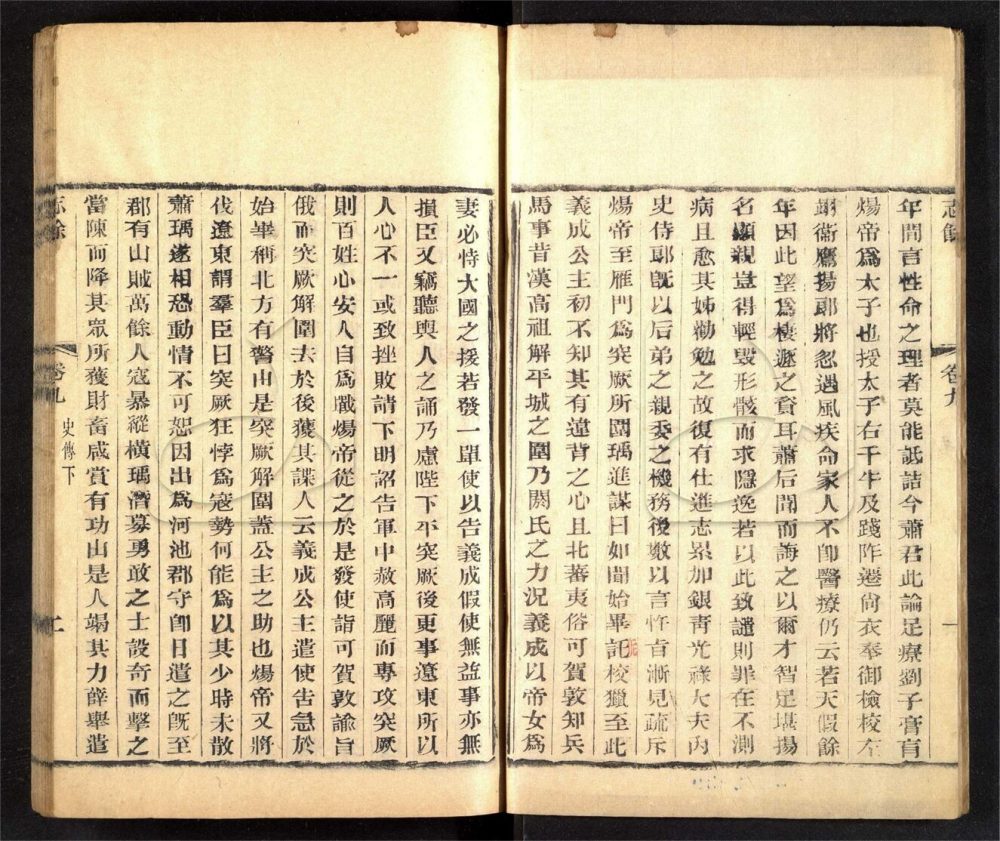 志餘
卷九
一
年間言性命之理者莫能詆詰今蕭君此論足療劉子膏肓
煬帝爲太子也授太子右千牛及踐阼遷尚衣奉御檢校左
翊衛鷹揚郎將忽遇風疾命家人不卽醫療仍云若天假餘
年因此望爲棲遁之資耳蕭后聞而誨之以爾才智足堪揚
名顯親豈得輕毀形骸而求隱逸若以此致譴則罪在不測
病且愈其姊勸勉之故復有仕進志累加銀青光祿大夫內
史侍郎旣以后弟之親委之機務後數以言忤旨漸見疏斥
煬帝至雁門爲突厥所圍瑀進謀曰如聞始畢託校獵至此
義成公主初不知其有違背之心且北蕃夷俗可賀敦知兵
馬事昔漢高祖解平城之圍乃閼氏之力況義成以帝女爲
妻必恃大國之援若發一單使以告義成假使無益事亦無
損臣又竊聽輿人之誦乃慮陛下平突厥後更事遼東所以
人心不一或致挫敗請下明詔告軍中赦高麗而專攻突厥
則百姓心安人自爲戰煬帝從之於是發使詣可賀敦諭旨
俄而突厥解圍去於後獲其諜人云義成公主遣使告急於
始畢稱北方有警由是突厥解圍蓋公主之助也煬帝又將
伐遼東謂羣臣曰突厥狂悖爲寇勢何能爲以其少時未散
蕭瑀遂相恐動情不可恕因出爲河池郡守卽日遣之旣至
郡有山賊萬餘人寇暴縱橫瑀潛募勇敢之士設奇而擊之
當陳而降其眾所獲財畜咸賞有功由是人竭其力薛舉遣
志餘
卷九
史傳下
二